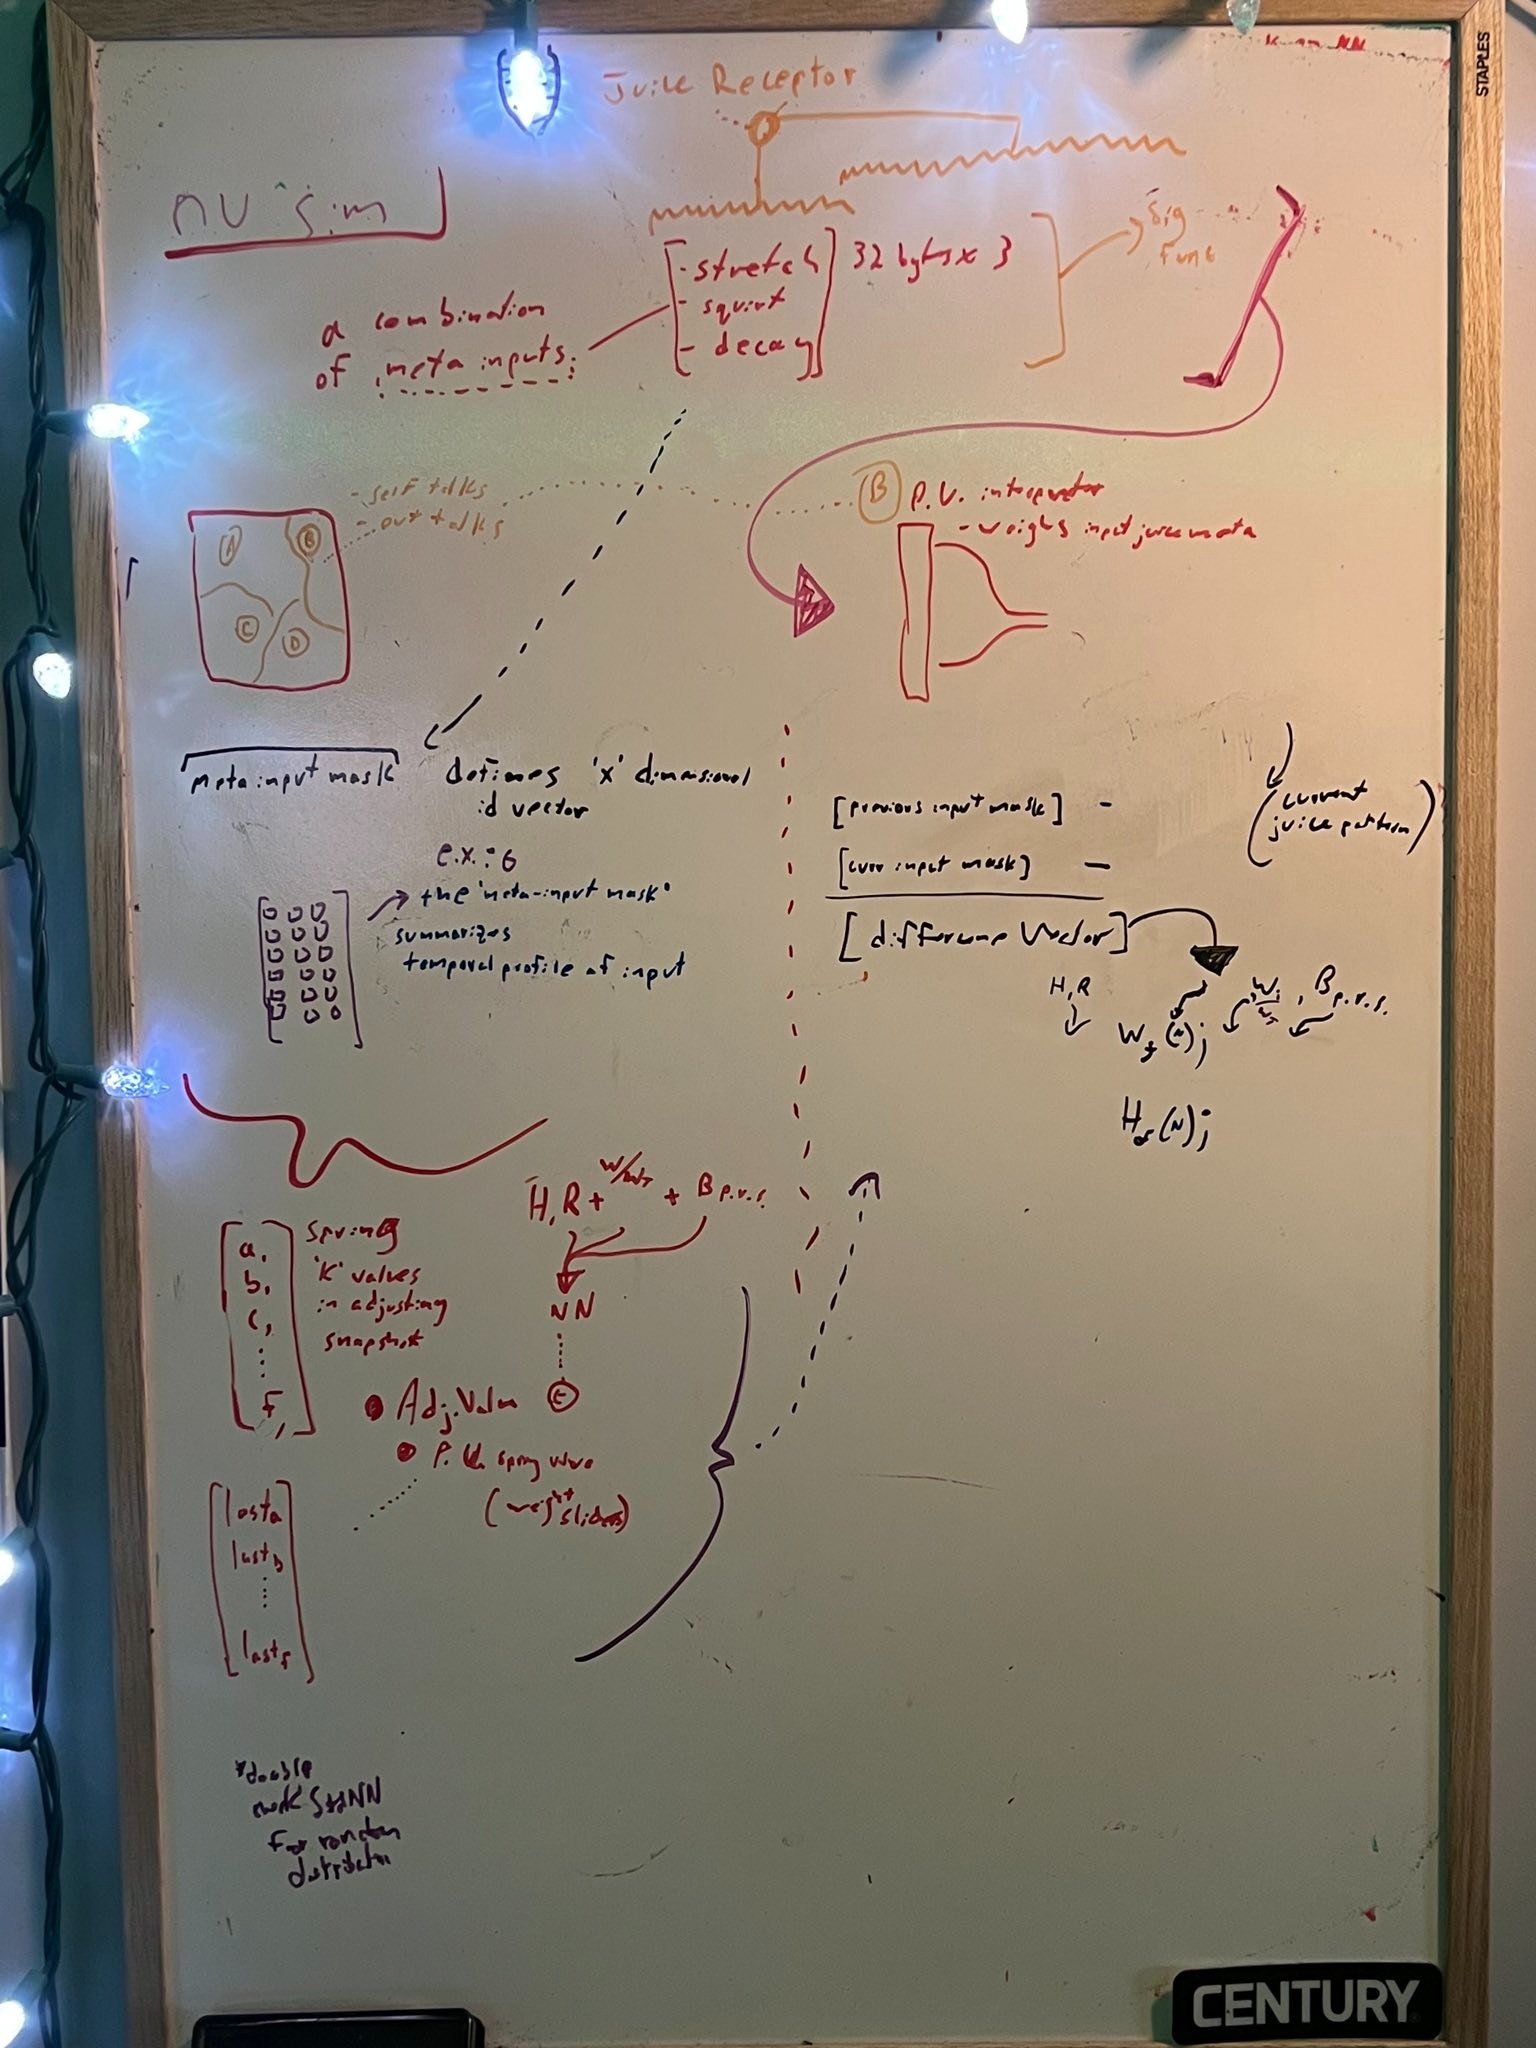 STAPLES
Juice Receptor
NV Sim
- stretch
- squirt
- decay
32 bytes x 3
Sig
Func
a combination
of meta inputs
- self talks
- out talks
A
B
C
D
B P.V. interpreter
- weighs input juice meta
meta input mask
Defines 'x' dimensional
id vector
e.x.: 6
the 'meta-input mask'
summarizes
temporal profile of input
[previous input mask] -
[curr input mask] -
[difference Vector]
(current
juice pattern)
H, R
B p.v.s.
H, R + + B p.v.s.
NN
a,
b,
c,
f,
Spring
'K' values
in adjusting
snapshot
Adj. Value t
P.V. spring wave
(weight
sliders)
last a
last b
last f
*double
for random
distribution
CENTURY